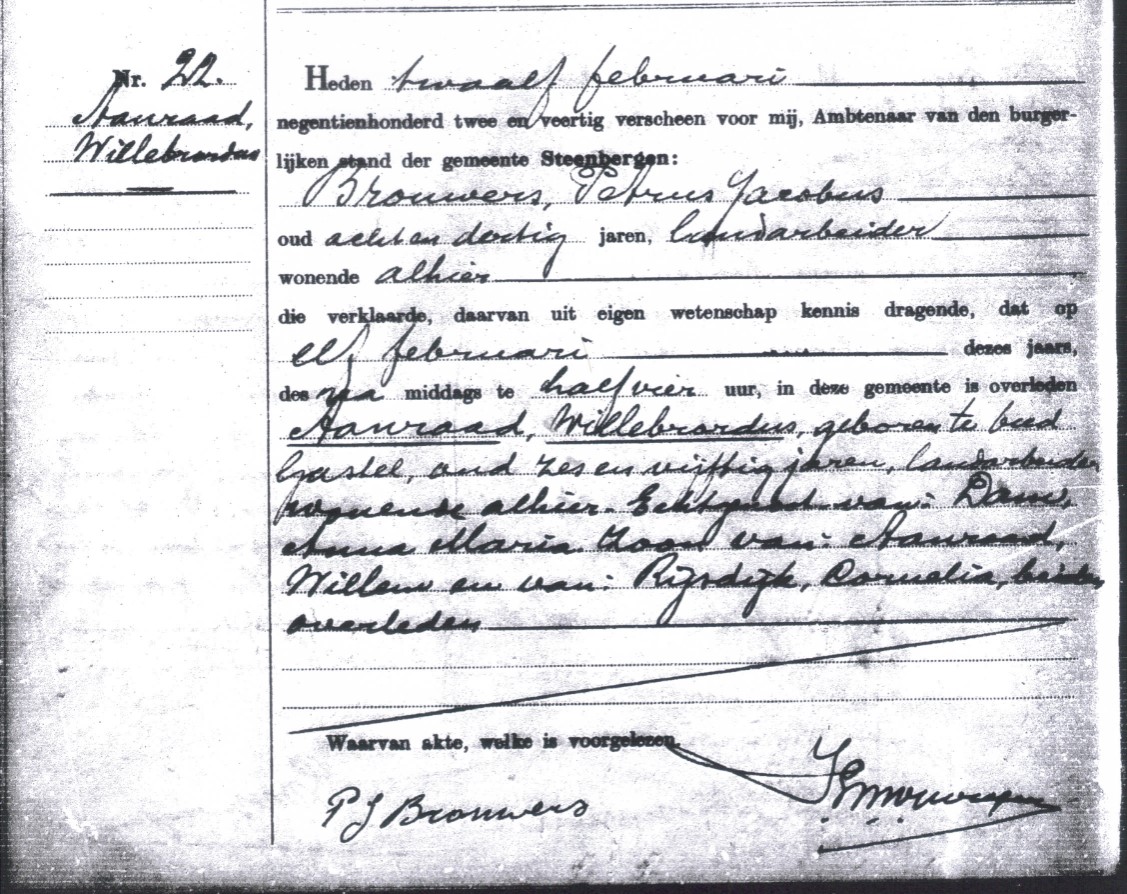 Nr. 22.
Aanraad,
Willebrordus
Heden twaalf februari
negentienhonderd twee en veertig verscheen voor mij, Ambtenaar van den burger-
lijken stand der gemeente Steenbergen:
Brouwers, Petrus Jacobus
oud acht en dertig jaren, landarbeider
wonende alhier
die verklaarde, daarvan uit eigen wetenschap kennis dragende, dat op
elf februari dezes jaars,
des na middags te half vier uur, in deze gemeente is overleden
Aanraad, Willebrordus, geboren te Oud
Gastel, oud zes en vijftig jaren, landarbeider
wonende alhier. Echtgenoot van: Dam,
Anna Maria. Zoon van: Aanraad,
Willem en van: Rijsdijk, Cornelia, beiden
overleden
Waarvan akte, welke is voorgelezen.
P J Brouwers